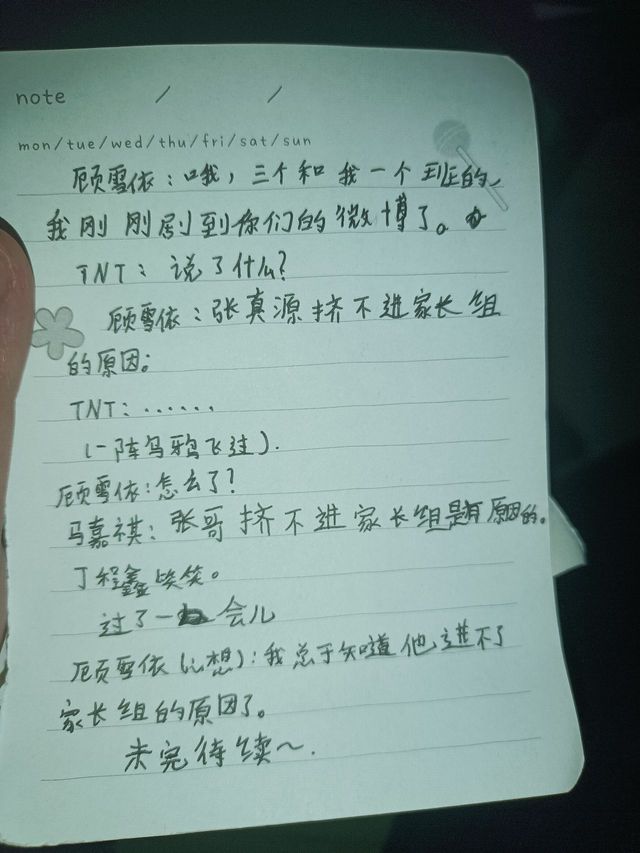 note / /
mon/tue/wed/thu/fri/sat/sun
顾雪依：哦，三个和我一个班的，
我刚刚刷到你们的微博了。
TNT：说了什么？
顾雪依：张真源挤不进家长组
的原因：
TNT：......
(一阵乌鸦飞过).
顾雪依：怎么了？
马嘉祺：张哥挤不进家长组是有原因的。
丁程鑫笑笑。
过了一会儿
顾雪依(心想)：我总于知道他进不了
家长组的原因了。
未完待续～.